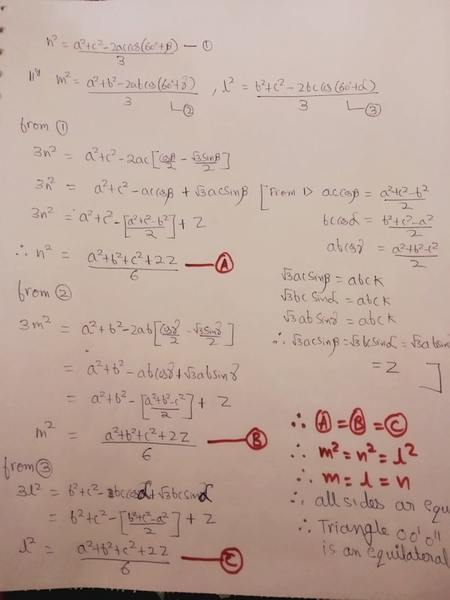 n² = a²+c²-2accos(60°+β)/3 — ①
|||ly m² = a²+b²-2abcos(60°+γ)/3 ②, l² = b²+c²-2bccos(60°+α)/3 ③
from ①
3n² = a²+c²-2ac[cosβ/2 - √3sinβ/2]
3n² = a²+c²-accosβ + √3acsinβ
[From Δ accosβ = a²+c²-b²/2
3n² = a²+c²-[a²+c²-b²/2] + Z
bccosα = b²+c²-a²/2
abcosγ = a²+b²-c²/2
∴ n² = a²+b²+c²+2Z/6 — Ⓐ
√3acsinβ = abck
√3bcsinα = abck
√3absinγ = abck
∴ √3acsinβ = √3bcsinα = √3absin
= Z ]
from ②
3m² = a²+b²-2ab[cosγ/2 - √3sinγ/2]
= a²+b²-abcosγ+√3absinγ
= a²+b²-[a²+b²-c²/2] + Z
m² = a²+b²+c²+2Z/6 — Ⓑ
from ③
3l² = b²+c²-bccosα+√3bcsinα
= b²+c²-[b²+c²-a²/2] + Z
l² = a²+b²+c²+2Z/6 — Ⓒ
∴ Ⓐ = Ⓑ = Ⓒ
∴ m² = n² = l²
∴ m = l = n
∴ all sides ar equ
∴ Triangle OO'O''
is an equilateral